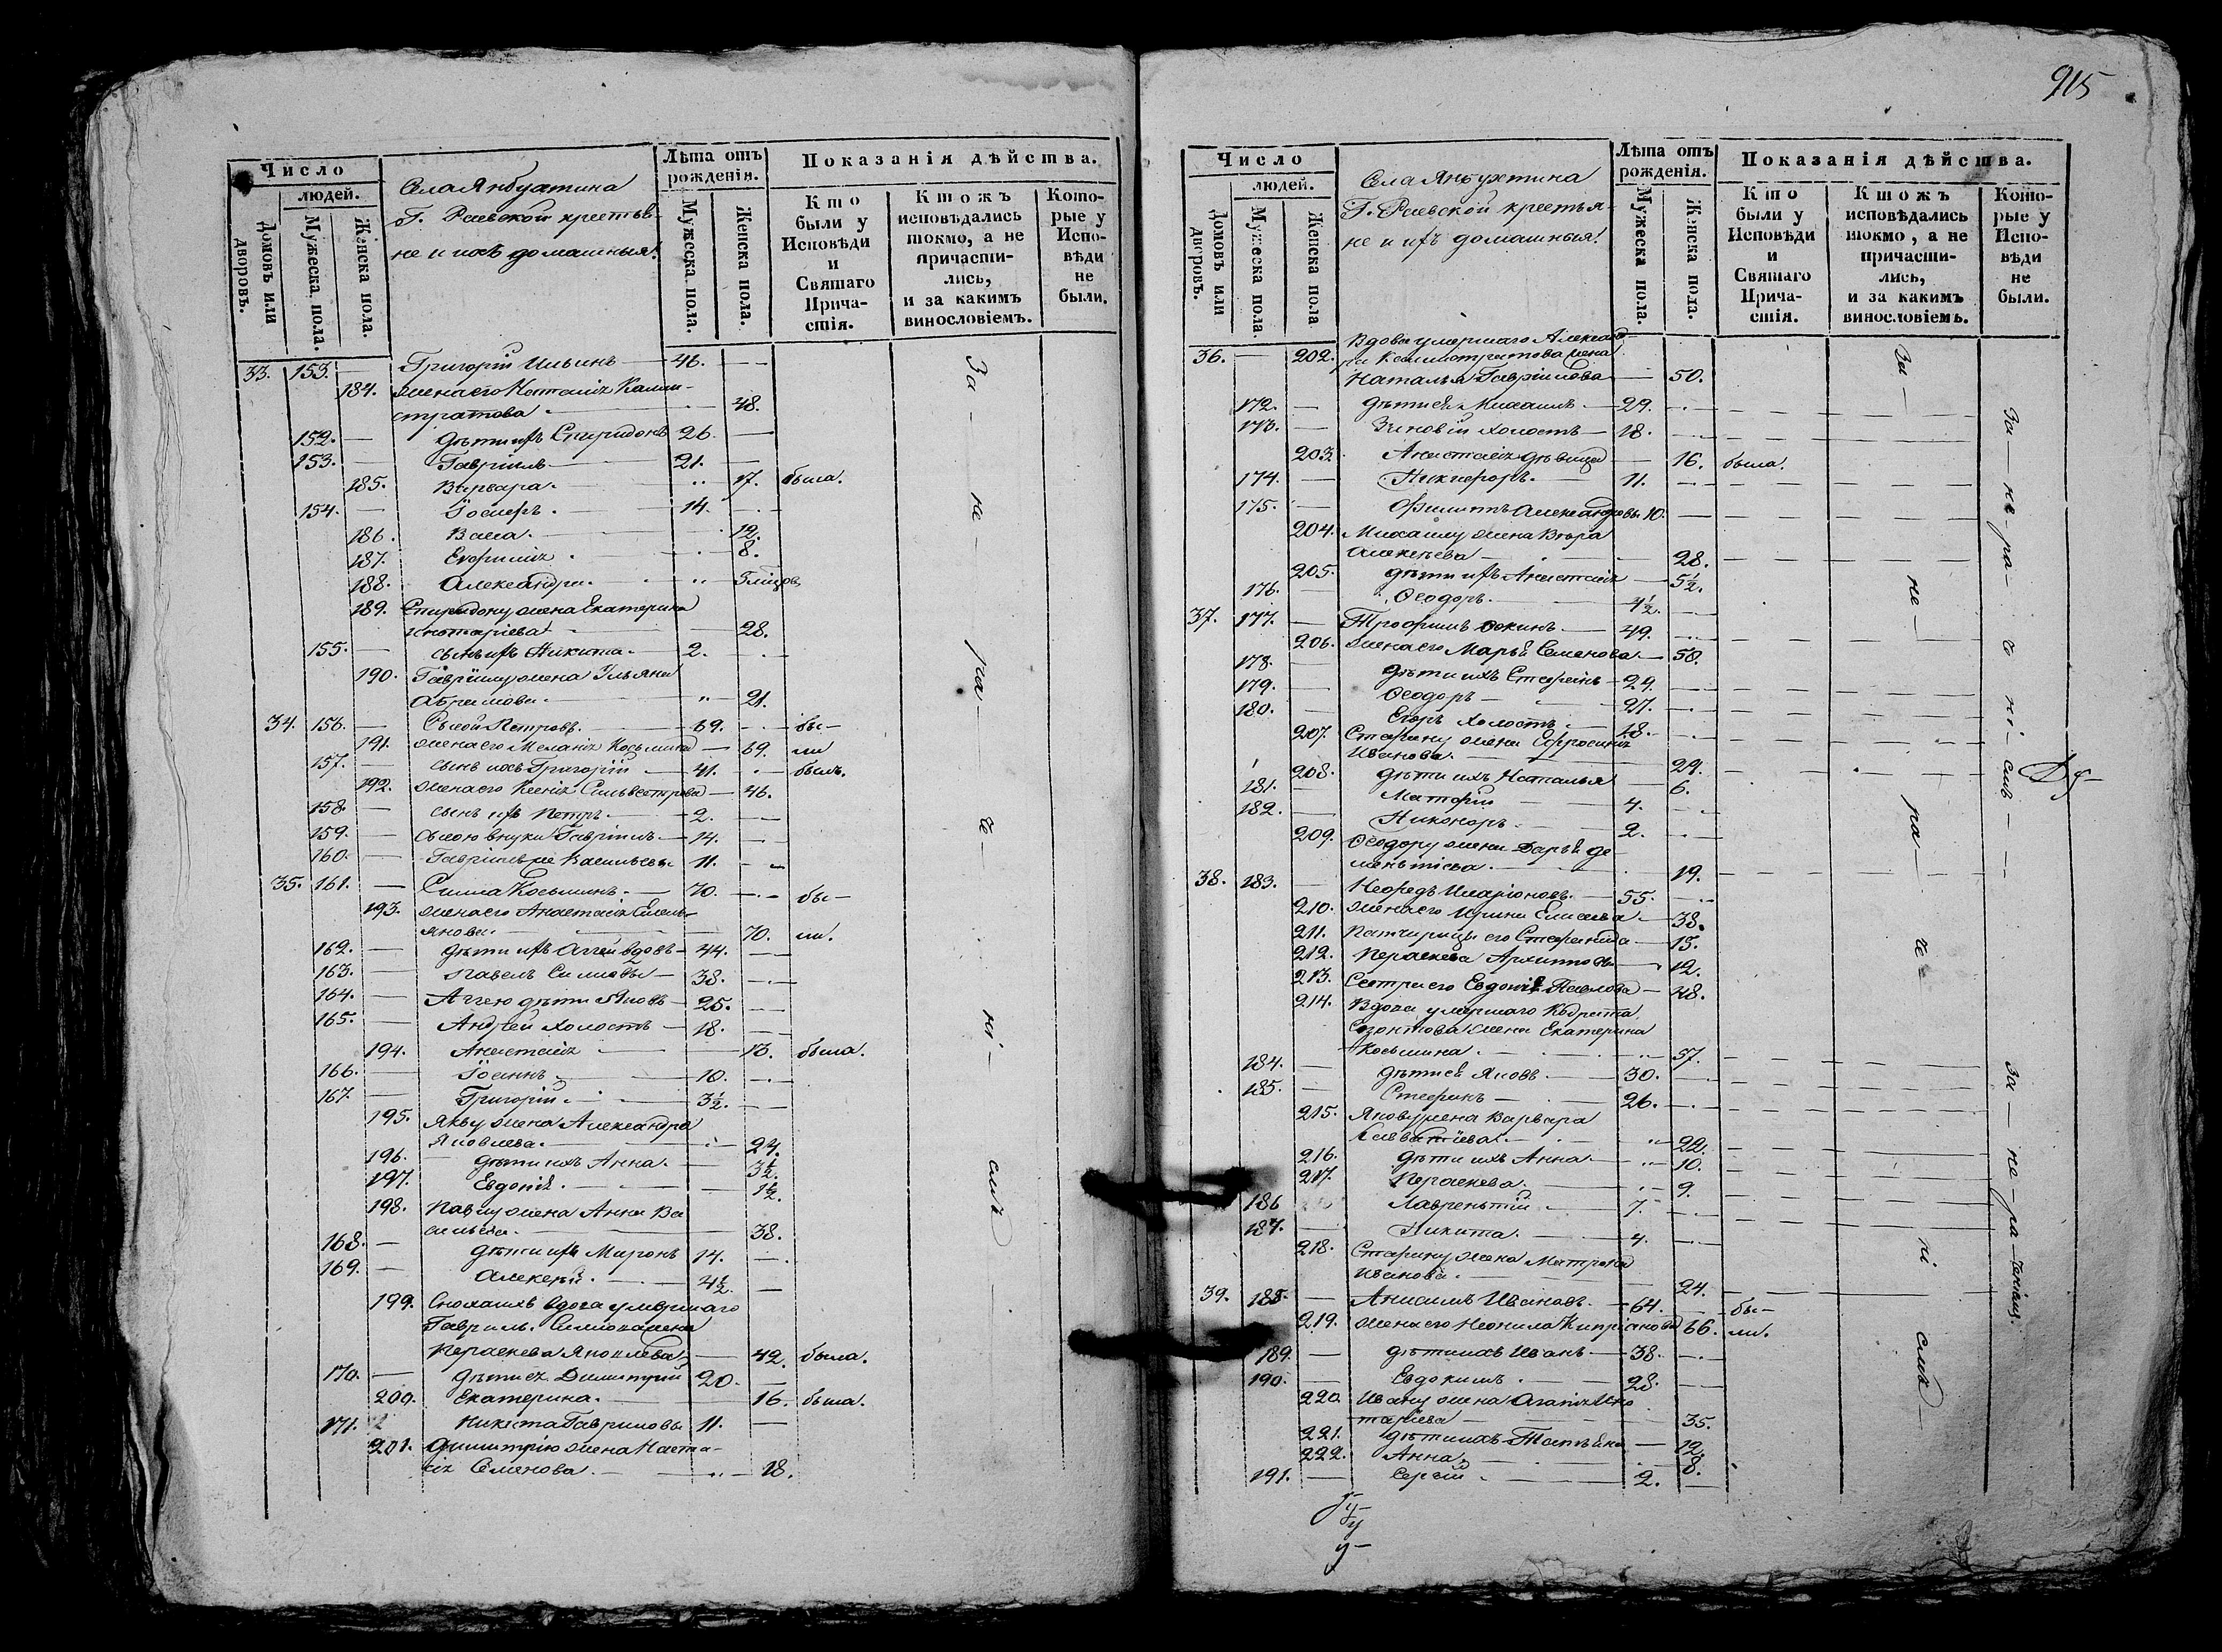 Число
людей.
Домовъ или дворовъ.
Мужеска пола.
Женска пола.
Села Янбухтина
Г. Раевской крестья-
не и ихъ домашныя.
Лѣта отъ рожденія.
Мужеска пола.
Женска пола.
Показанія дѣйства.
Кто были у Исповѣди и Святаго Прича-стія.
Ктожъ исповѣдались токмо, а не причасти-лись, и за какимъ винословіемъ.
Кото-рые у Испо-вѣди не были.
33. 153. — Григорій Ильинъ — 46. —
184. жена его Наталія Калли-
стратова — 48.
152. — дѣти ихъ Спиридонъ 26. —
153. — Гавріилъ — 21. —
185. Варвара. — 17. была.
154. — Іосифъ. — 14. —
186. Васса. — 12.
187. Евфимія — 8.
188. Александра. 5 мѣсцовъ
189. Спиридону жена Екатерина
Игнатріева — 28.
155. — сынъ ихъ Никита — 2. —
190. Гавріилу жена Ульяна
Абрамова — 21.
34. 156. — Сысой Петровъ. — 69. — бы-
191. жена его Меланія Косьмина — 69. ли
157. — сынъ ихъ Григорій — 41. — былъ.
192. жена его Ксенія Сильвестрова — 46.
158. — сынъ ихъ Петръ. — 2. —
159. — Сысою внуки Гавріилъ — 14. —
160. — Гавріилъ же Васильевы 11. —
35. 161. — Симма Косьминъ. — 70. — бы-
193. жена его Анастасія Емель-
янова. — 70. ли.
162. — дѣти ихъ Аггей вдовъ — 44. —
163. — Павелъ Симмовы — 38. —
164. — Аггею дѣти Яковъ — 25. —
165. — Андрей холостъ — 18. —
194. Анастасія — 13. была.
166. — Іоаннъ — 10. —
167. — Григорій. — 3½. —
195. Якову жена Александра
Яковлева. — 24.
196. дѣти ихъ Анна. — 3½.
197. Евдокія. — 1½.
198. Павлу жена Анна Ва
сильева. — 38.
168. — дѣти ихъ Миронъ 14. —
169. — Алексѣй. — 4½. —
199. Сноха ихъ вдова умершаго
Гавріила Симмова жена
Параскева Яковлева — 42. была.
170. — дѣти ея Димитрій 20. —
200. Екатерина. — 16. была.
171. Никита Гавриловы 11. —
201. Димитрію жена Наста-
сія Семенова. — 18.
За — не — ра — че — ні — емъ
915
Число
людей.
Домовъ или дворовъ.
Мужеска пола.
Женска пола
Села Янбухтина
Г. Раевской крестья-
не и ихъ домашныя.
Лѣта отъ рожденія.
Мужеска пола.
Женска пола.
Показанія дѣйства.
Кто были у Исповѣди и Святаго Прича-стія.
Ктожъ исповѣдались токмо, а не причасти-лись, и за какимъ винословіемъ.
Кото-рые у Испо-вѣди не были.
36. — 202. Вдова умершаго Александ-
ра Каллистратова жена
Наталья Гавріилова — 50.
172. — дѣти ея Михаилъ — 29. —
173. — Зиновій холостъ — 18. —
203. Анастасія дѣвица — 16. была.
174. — Никифоръ. — 11. —
175. — Филиппъ Александровы 10. —
204. Михаилу жена Вѣра
Алексѣева — 28.
205. дѣти ихъ Анастасія — 5½.
176. — Ѳеодоръ. — 4½. —
37. 177. — Трофимъ Фокинъ — 49. —
206. жена его Марья Семенова — 50.
178. — дѣти ихъ Стефанъ — 29. —
179. — Ѳеодоръ — 27. —
180. — Егоръ холостъ. — 18. —
207. Стефану жена Ефросинія
Иванова. — 29.
208. дѣти ихъ Наталья — 6.
181. — Матфій — 4. —
182. — Никоноръ. — 2. —
209. Ѳеодору жена Дарья де-
ментіева — 19.
38. 183. — Неофедъ Иларіоновъ. — 55. —
210. жена его Ирина Елисеева — 38.
211. Патчирицы его Стефанида — 15.
212. Параскева Архиповы — 12.
213. Сестра его Евдокія Павлова — 48.
214. Вдова умершаго Кодрата
Созонтова жена Екатерина
Косьмина. — 57.
184. — дѣти ея Яковъ — 30. —
185. — Стефанъ — 26. —
215. Якову жена Варвара
Савватіева. — 22.
216. дѣти ихъ Анна — 10.
217. Параскева. — 9.
186 Лаврентій — 7. —
187. — Никита. — 4. —
218. Стефану жена Матрона
Иванова. — 24.
39. 188. — Анисимъ Ивановъ. — 64. — бы-
219. жена его Неонила Кипріанова 66. ли.
189. — дѣти ихъ Иванъ — 38. —
190. — Евдокимъ — 28. —
220. Ивану жена Агапія Игна
таріева — 35.
221. дѣти ихъ Татьяна — 12.
222. Анна — 8.
191. — Сергій — 2. —
За — не — ра — че — ні — емъ
За — не — ра — че — ні — емъ —
За — не — ра — ченіемъ.